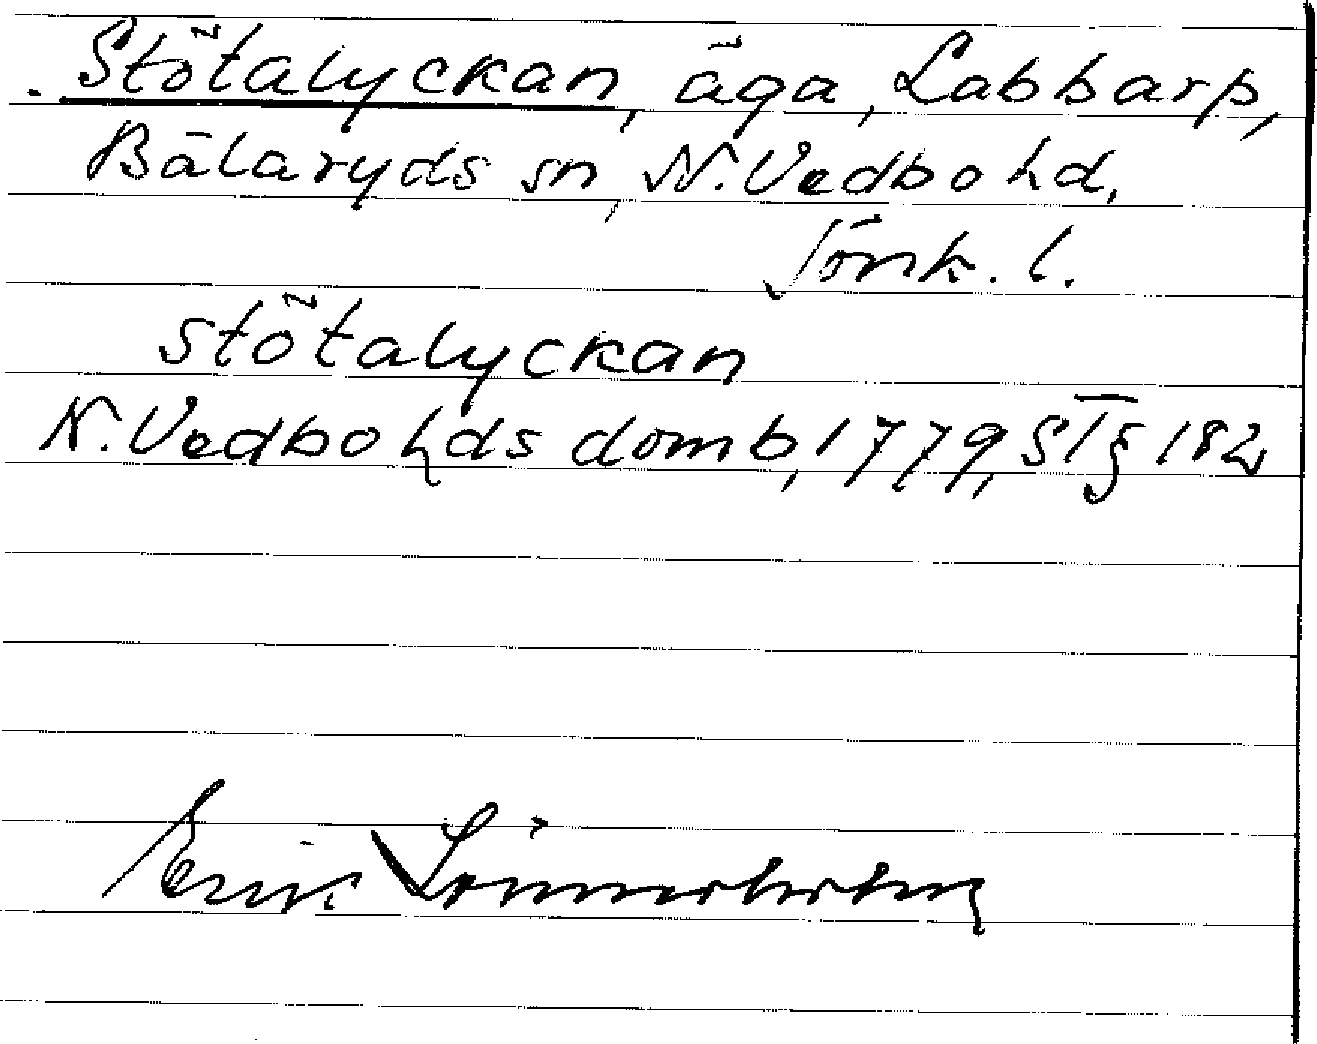 Stötalyckan, äga, Labbarp,
Bälaryds sn, N. Vedbo hd,
Jönk. l.
stötalyckan
N. Vedbo hds domb, 1779, ST § 182
Erik Lönnerholm